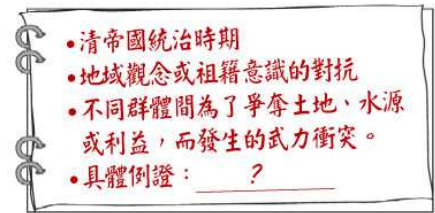 •清帝國統治時期
•地域觀念或祖籍意識的對抗
•不同群體間為了爭奪土地、水源
或利益，而發生的武力衝突。
•具體例證：　　?